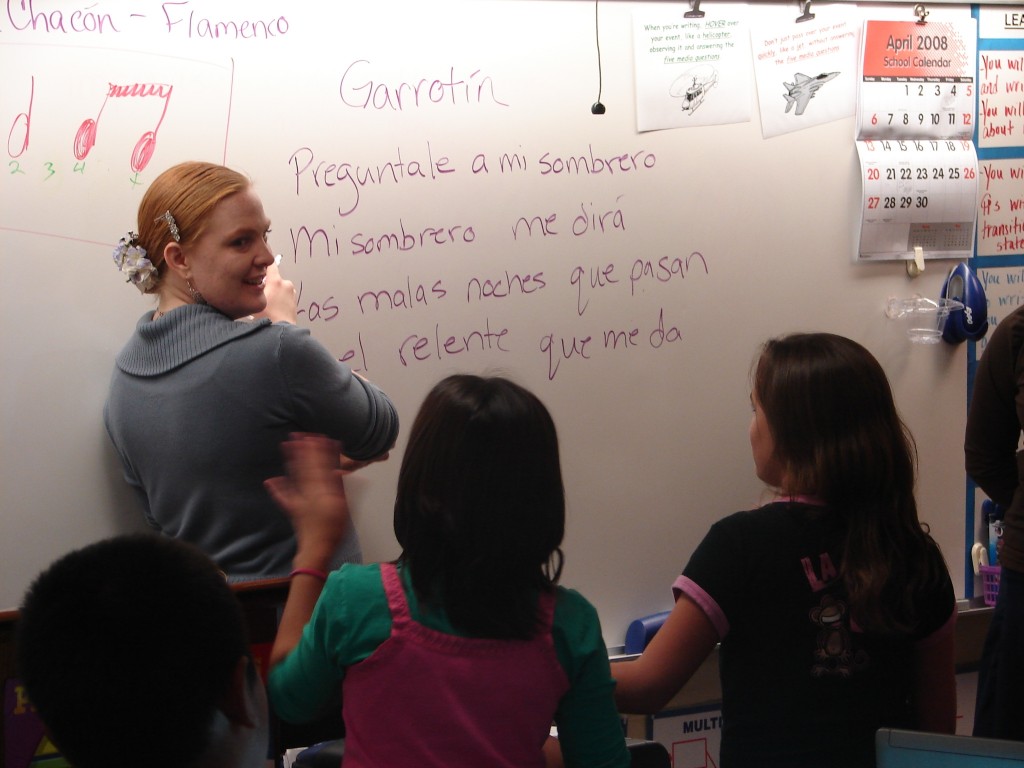 Chacón - Flamenco
2 3 4 x
Garrotín
Preguntale a mi sombrero
Mi sombrero me dirá
Las malas noches que pasan
el relente que me da
When you're writing, HOVER over
your event, like a helicopter
observing it and answering the
five media questions
Don't just pass over your event
quickly, like a jet without answering
the five media questions
April 2008
School Calendar
1 2 3 4 5
6 7 8 9 10 11 12
13 14 15 16 17 18 19
20 21 22 23 24 25 26
27 28 29 30
LEA
-You will
and wri
-You will
about
-You wi
transiti
state
LA
MULT